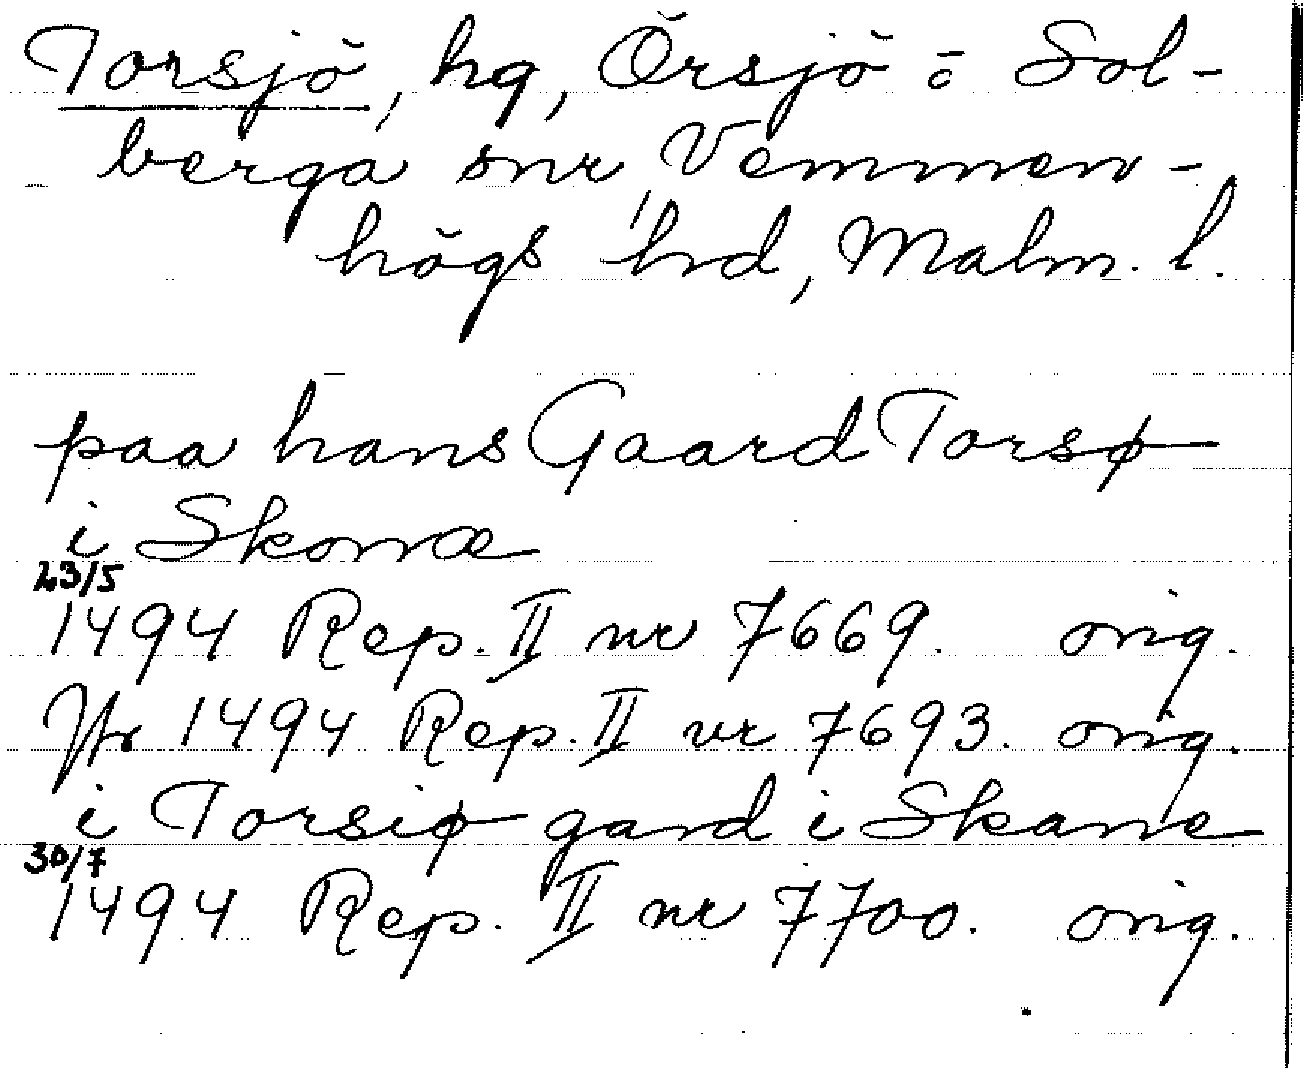 Torsjö, hg, Örsjö o Sol-
berga snr, Vemmen-
högs hd, Malm. l.
paa hans Gaard Torsø
i Skonæ
23/5
1494 Rep. II nr 7669. orig.
Jfr 1494 Rep. II nr 7693. orig.
i Torsiø gard i Skane
30/7
1494 Rep. II nr 7700. orig.